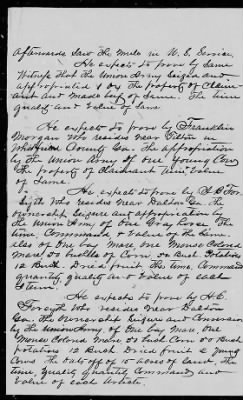 afterwards Saw the Mule in U.S. Service.
He expects to prove by Same
Witness that the Union Army Seized and
appropriated 1 Ox the property of Claim-
ant and Made beef of Same. The time
quality and Value of Same
He expects to prove by Franklin
Morgan who resides near Tilton in
Whitfield County Ga. the appropriation
by the Union Army of one Young Cow
the property of Claimant time & Value
of Same.
He expects to prove by
Who resides near Dalton Ga. the
Ownership Seizure and appropriation by
the Union Army of One Gray Horse. The
time, Command, & Value of the
also of One bay Mare, one Mouse Colored
Mare, 50 bushels of Corn, 50 Bush Potatoes
12 Bush. Dried fruit. The time, Command,
quantity, quality and value of each
Item.
He expects to prove by H.C.
Forsyth who resides near Dalton
Ga. the Ownership Seizure and Conversion
by the Union Army, of One bay Mare, one
Mouse Colored Mare 50 bush Corn 50 Bush
potatoes 12 Bush Dried fruit 2 Young
Cows the of 15 acres of Land. The
time, quality quantity Command and
Value of each Article.